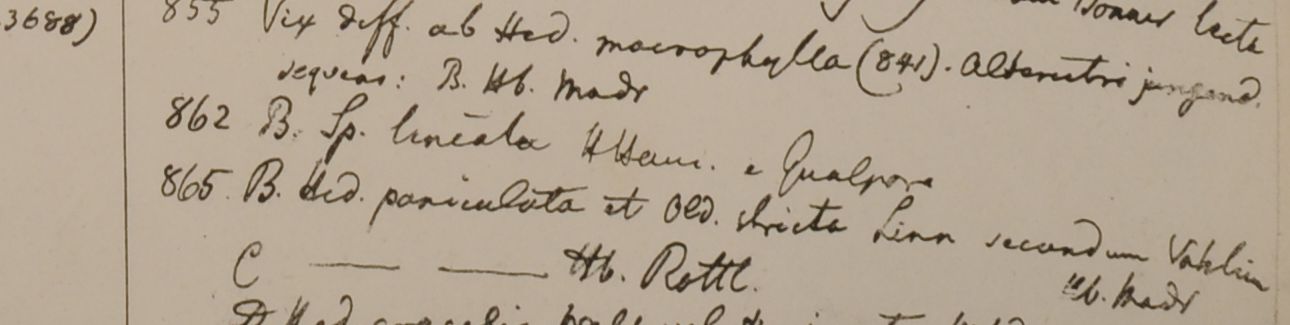 3688) 855 Vix diff. ab Hed. macrophylla (841). Alterutri jungend.
sequens: B. Hb. Madr
862 B. Sp. lineata HHam. e Gualpara
865 B. Hed. paniculata et Old. stricta Linn secundum Vahlium
Hb. Madr
C — — Hb. Rottl.